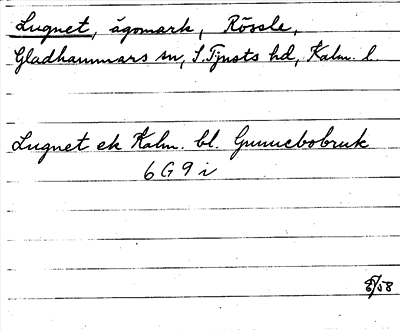 Lugnet, ägomark, Rössle,
Gladhammars sn, S. Tjusts hd, Kalm. l.
Lugnet ek Kalm. bl. Gunnebobruk
6 G 9 i